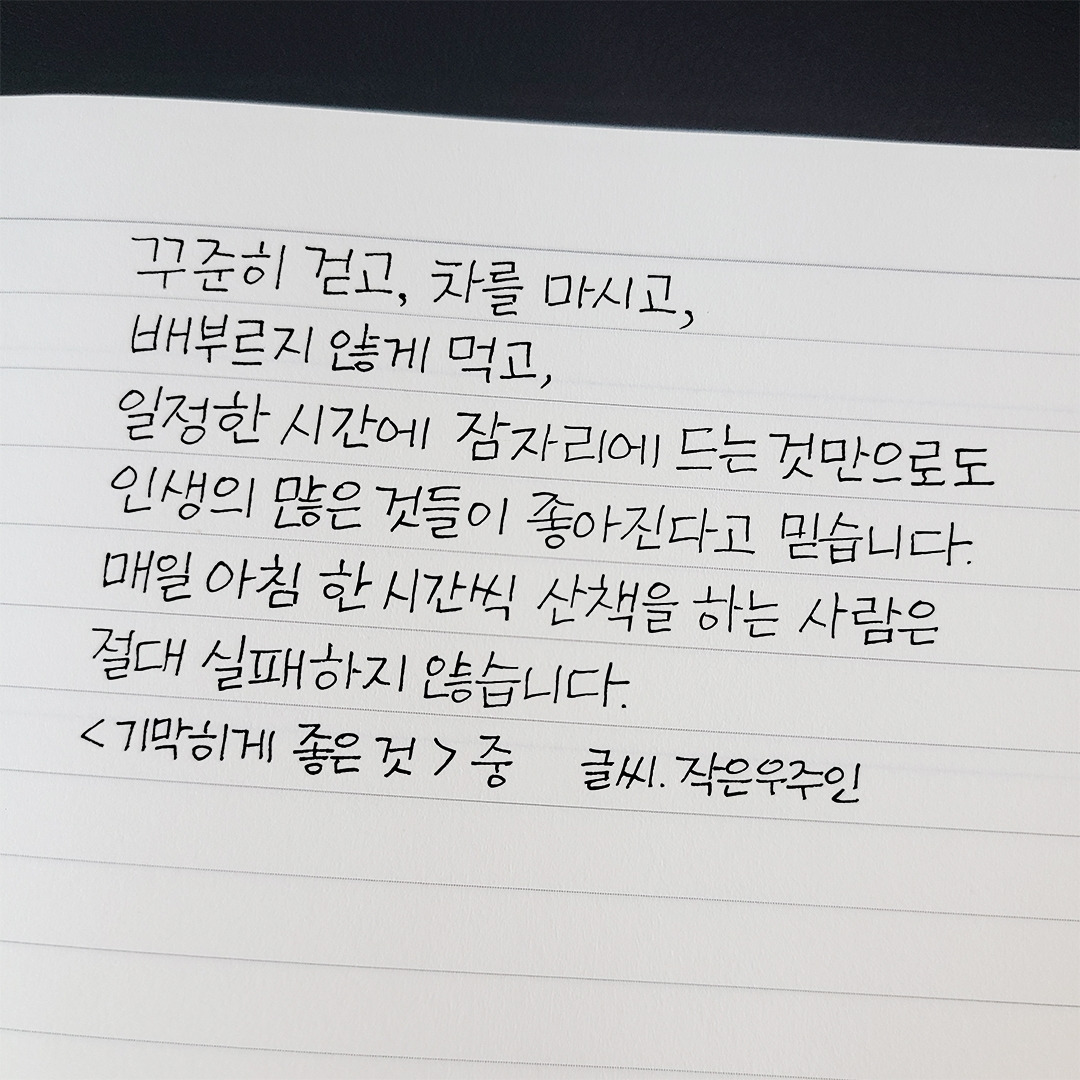 꾸준히 걷고, 차를 마시고,
배부르지 않게 먹고,
일정한 시간에 잠자리에 드는 것만으로도
인생의 많은 것들이 좋아진다고 믿습니다.
매일 아침 한 시간씩 산책을 하는 사람은
절대 실패하지 않습니다.
<기막히게 좋은 것> 중 글씨. 작은우주인